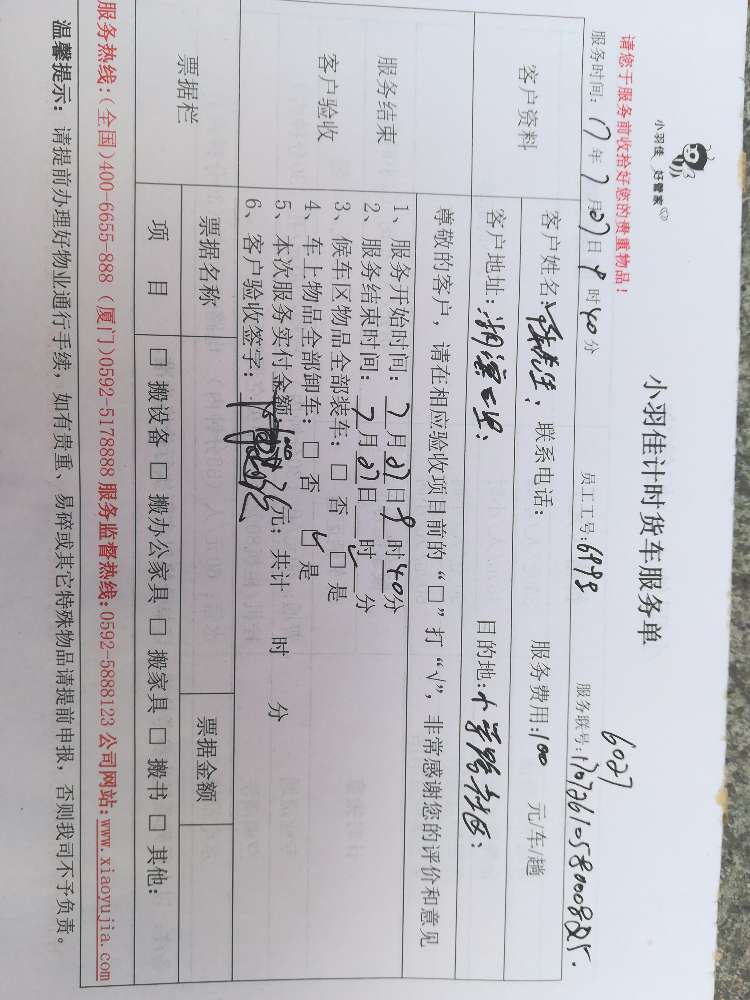 小羽佳 好管家
小羽佳计时货车服务单
6027
请您于服务前收拾好您的贵重物品！
服务时间：17年7月27日9时40分 员工工号：6998 服务联号：
客户资料
客户姓名： 联系电话： 服务费用：100 元/车/趟
客户地址：湖滨 目的地：小学路社区
服务结束
客户验收
尊敬的客户，请在相应验收项目前的“□”打“√”，非常感谢您的评价和意见
1、服务开始时间：7月27日9时40分
2、服务结束时间：7月27日 时 分
3、候车区物品全部装车：□ 否 □ 是
4、车上物品全部卸车：□ 否 □ 是
5、本次服务实付金额 元；共计 时 分
6、客户验收签字：
票据栏
票据名称 票据金额
项 目 □ 搬设备 □ 搬办公家具 □ 搬家具 □ 搬书 □ 其他：
服务热线：(全国)400-6655-888 (厦门)0592-5178888 服务监督热线：0592-5888123 公司网站：www.xiaoyujia.com
温馨提示：请提前办理好物业通行手续，如有贵重、易碎或其它特殊物品请提前申报，否则我司不予负责。